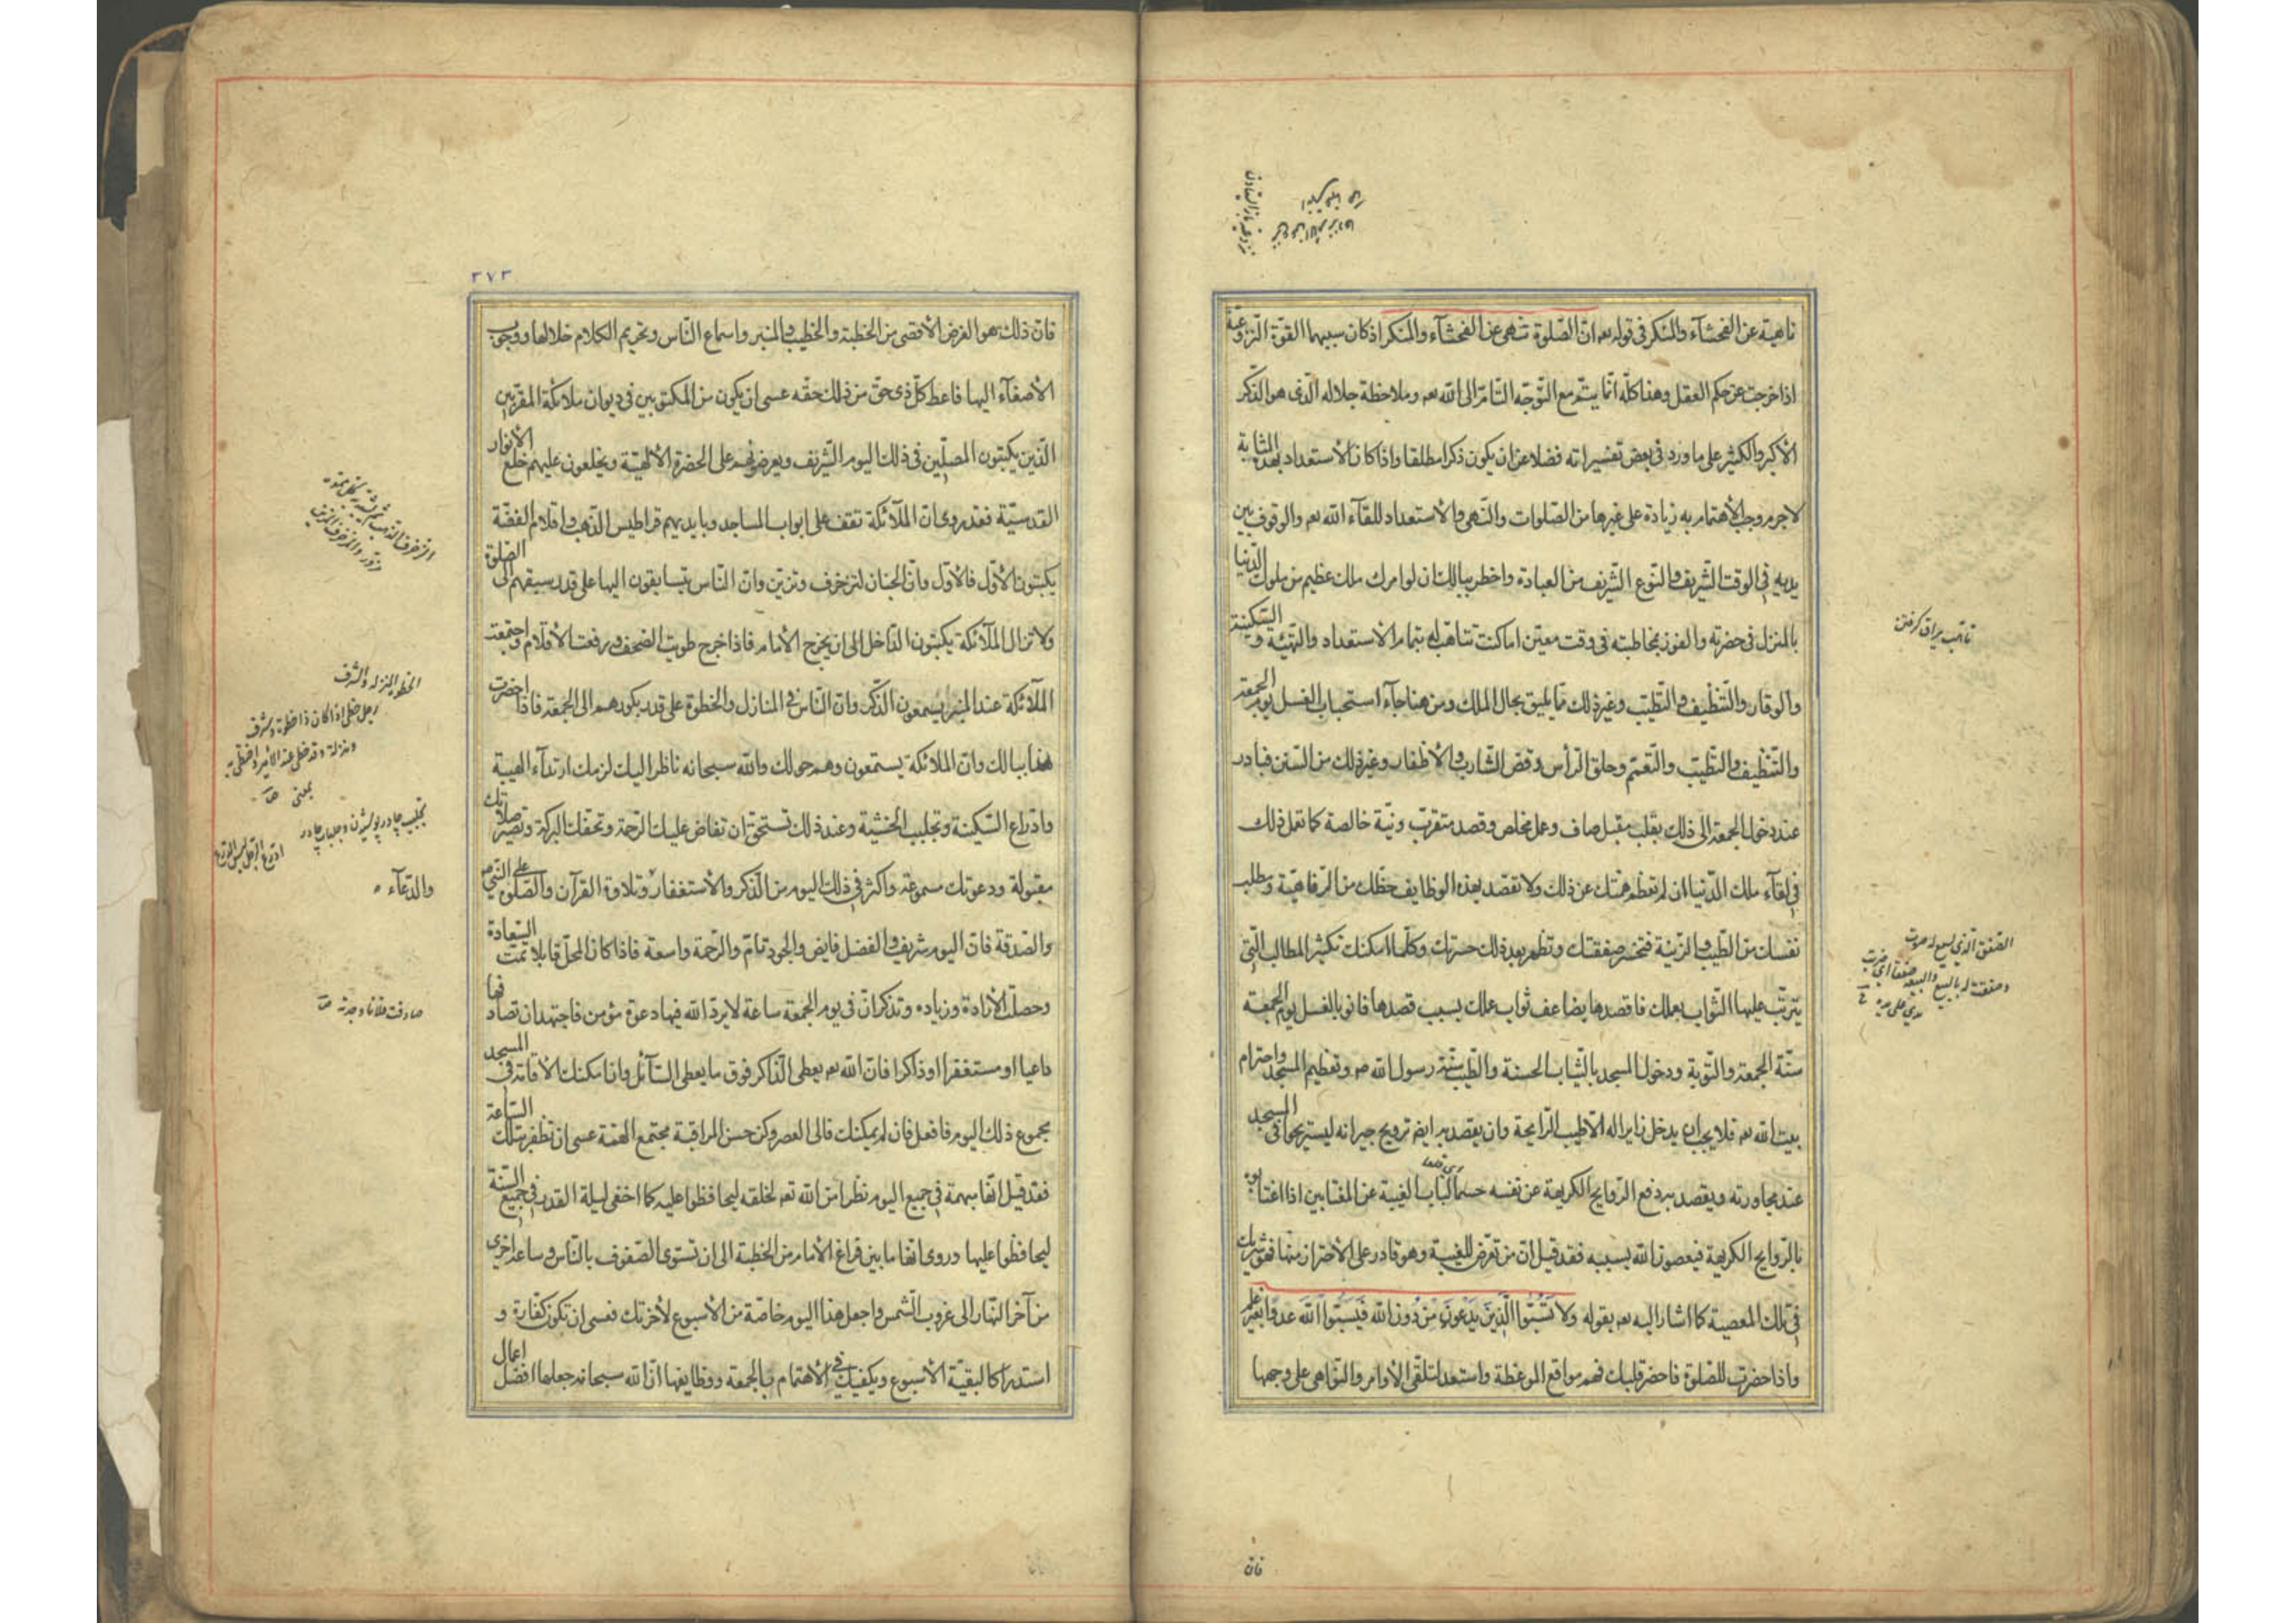 ناهية عن الفحشآء والمنكر في قوله تعہ انّ الصّلوة تنهى عن الفحشآء والمنكر اذ كان سببهما القوّة النّزوعيّة
اذا خرجت عن حكم العقل وهذا كلّه انّما يتمّ مع التّوجّه التّامّ الى الله تعہ وملاحظة جلاله الّذى هو الذّكر
الأكبر والكثير على ما ورد في بعض تفسيراته فضلا عن ان يكون ذكرا مطلقا واذا كان الأستعداد بهذه المثابة
لاجرم وجب الأهتمام به زيادة على غيرها من الصّلوات والتّهىء والأستعداد للقآء الله تعہ والوقوف بين
يديه في الوقت الشّريف والنّوع الشّريف من العبادة واخطر ببالك ان لو امرك ملك عظيم من ملوك الدّنيا
بالمنزل في حضرته والفوز بمخاطبته في وقت معيّن اما كنت تتاهّب له بتمام الاستعداد والتّهيّة والسّكينة
والوقار والتّنظيف والتّطيّب وغير ذلك ممّا يليق بحال الملك ومن هنا جآء استحباب الغسل يوم الجمعة
والتّنظيف والتّطيّب والتّعمّم وحلق الرّأس وقصّ الشّارب والأظفار وغير ذلك من السّنن فبادر
عند دخول الجمعة الى ذلك بقلب مقبل صاف وعمل مخلص وقصد متقرّب ونيّة خالصة كما تعمل ذلك
في لقآء ملك الدّنيا ان لم تعظم همّتك عن ذلك ولا تقصد بهذه الوظايف حظّك من الرّفاهيّة ومطلب
نفسك من الطّيب والزّينة فتخسر صفقتك وتظهر بعد ذلك حسرتك وكلّما امكنك تكثير المطالب الّتي
يترتّب عليها الثّواب بعملك فاقصدها يضاعف ثواب عملك بسبب قصدها فانو بالغسل يوم الجمعة
سنّة الجمعة والتّوبة ودخول المسجد بالثّياب الحسنة والطّيب سنّة رسول الله صہ وتعظيم المسجد واحترام
بيت الله تعہ فلا يجب ان يدخل زايرا له الّا طيّب الرّايحة وان يقصد به ايضہ ترويح جيرانه ليستريحوا في المسجد
عند مجاورته ويقصد به دفع الرّوايح الكريهة عن نفسه حسما لباب الغيبة عن المغتابين اذا اغتابوه
اى قطعا
بالرّوايح الكريهة فيعصون الله بسببه فقد قيل انّ من تعرّض للغيبة وهو قادر على الأحتراز منها فهو شريك
في تلك المعصية كما اشار اليه تعہ بقوله ولا تَسُبّوا الَّذينَ يَدْعونَ مِنْ دُونِ الله فَيَسُبّوا اللهَ عدوًا بغير علم
واذا حضرت للصّلوة فاحضر قلبك فهم مواقع الموعظة واستعدّ لتلقّى الأوامر والنّواهى على وجهها
فان
تاهّب يراق كرفتن
الصّفق الّذي يسمع له صوت
وصفقت له بالبيع والبيعة صفقا اى ضربت
يدي على يده
٣٧٣
فانّ ذلك هو الغرض الأقصى من الخطبة والخطيب والمنبر واسماع النّاس وتحريم الكلام خلالها ووجوب
الأصغآء اليها فاعط كلّ ذى حقّ من ذلك حقّه عسى ان يكون من المكتوبين في ديوان ملائكة المقرّبين
الّذين يكتبون المصلّين في ذلك اليوم الشّريف ويعرضونهم على الحضرة الألهيّة ويخلعون عليهم خلع الأنوار
القدسيّة فقد روى انّ الملآئكة تقف على ابواب المساجد وبايديهم قراطيس الذّهب واقلام الفضّة
يكتبون الأوّل فالأوّل وانّ الجنان لتزخرف وتزيّن وانّ النّاس يتسابقون اليها على قدر سبقهم الى الصّلوة
ولا تزال الملآئكة يكتبون الدّاخل الى ان يخرج الأمام فاذا خرج طويت الصّحف ورفعت الأقلام واجتمعت
الملآئكة عند المنبر يستمعون الذّكر وانّ النّاس في المنازل والخطوة على قدر بكورهم الى الجمعة فاذا احضرت
هذا ببالك وانّ الملائكة يستمعون وهم حولك والله سبحانه ناظر اليك لزمك ارتدآء الهيبة
وادّراع السّكينة وتجلبب الخشية وعند ذلك تستحقّ ان تفاض عليك الرّحمة وتحفّك البركة وتصير صلاتك
مقبولة ودعوتك مسموعة واكثر في ذلك اليوم من الذّكر والأستغفار وتلاوة القرآن والصّلوة على النّبيّ صہ
والصّدقة فانّ اليوم شريف والفضل فايض والجود تامّ والرّحمة واسعة فاذا كان المحلّ قابلا تمّت السّعادة
وحصلت الأرادة وزيادة وتذكّر انّ في يوم الجمعة ساعة لا يردّ الله فيها دعوة مؤمن فاجتهد ان تصادفها
داعيا او مستغفرا او ذاكرا فانّ الله تعہ يعطى الذّاكر فوق ما يعطى السّآئل وان امكنك الأقامة في المسجد
مجموع ذلك اليوم فافعل فان لم يمكنك فالى العصر وكن حسن المراقبة مجتمع الهمّة عسى ان تظفر بتلك السّاعة
فقد قيل انّها مبهمة في جميع اليوم نظرا من الله تعہ لخلقه ليحافظوا عليه كما اخفى ليلة القدر في جميع السّنة
ليحافظوا عليها وروى انّها ما بين فراغ الأمام من الخطبة الى ان تستوى الصّفوف بالنّاس وساعة اخرى
من آخر النّهار الى غروب الشّمس واجعل هذا اليوم خاصّة من الأسبوع لأخرتك فعسى ان تكون كفّارة و
استدراكا لبقيّة الأسبوع ويكفيك في الأهتمام بالجمعة ووظايفها انّ الله سبحانه جعلها افضل اعمال
الحظوة المنزلة والشرف
رجل حظى اذا كان ذا حظوة وشرف
ومنزلة وقد حظى عند الأمير واحتظى به
بمعنى
تجلبب چادر پوشيدن وجلباب چادر
والدّعآء
صادفت فلانا وجدته